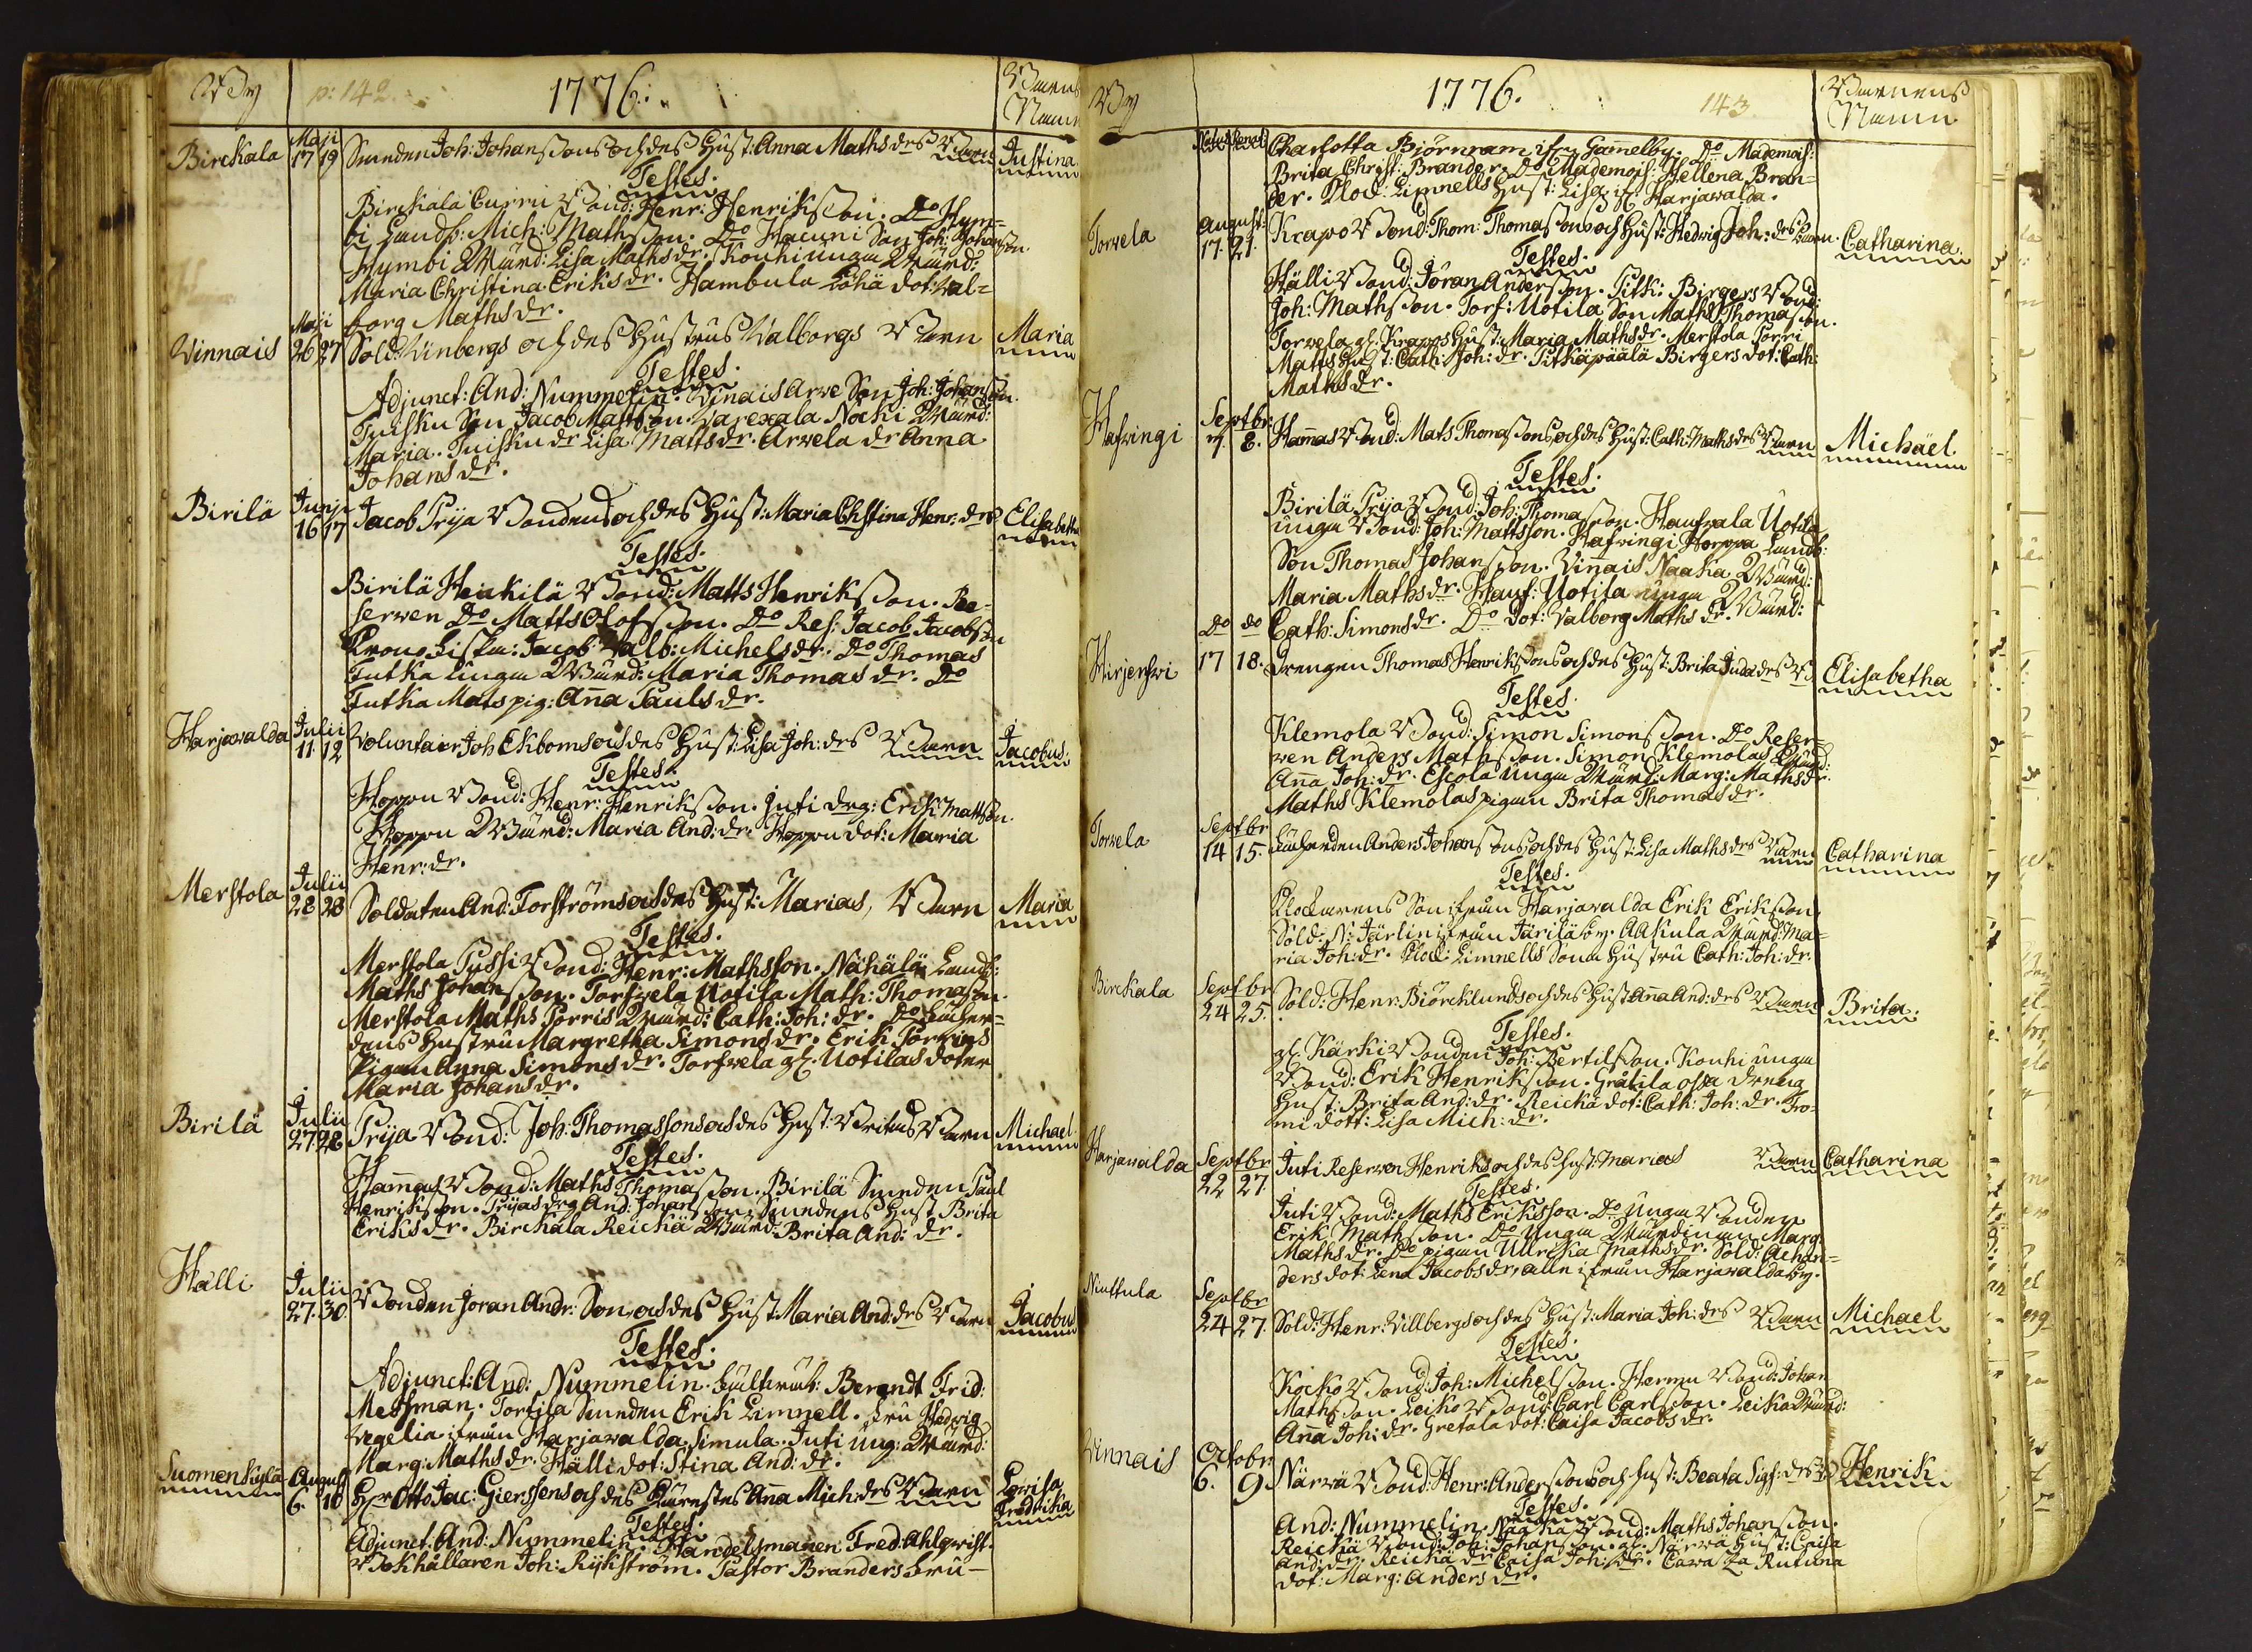 By
p: 142.
1776.
Barnens
Namn
Birckala
Maji
17 19
Smeden Joh: Johanssons och des Hust: Anna Mathsdrs Barn
Justina
Testes.
Birckala Curru Bond: Henr: Henriksson. Do Hym=
bi Landb: Mich: Mathsson. Do Hacuni Son Joh: Johansson
Hymbi Wärd: Lisa Mathsdr. Kouhi unga Wärd:
Maria Christina Eriksdr. Hambula Löhä dot: Wal=
borg Mathsdr.
Vinnais
Maji
26 27
Sold: Linbergs och des Hustrus Walborgs Barn
Maria
Testes.
Adjunct: And: Nummelin. Vinais Arve Son Joh: Johansson.
Tuisku Son Jacob Mattsson. Nocki Wärd:
Maria. Tuisku dr Lisa Mattsdr. Arvela dr Anna
Johansdr.
Birilä
Junji
16 17
Jacob Prija Bondens och des Hust: Maria Chstina Henr: drs
Elisabetha
Testes.
Birilä Heikilä Bond: Matts Henriksson. Re=
serven Do Matts Olofsson. Do Res: Jacob Jacobsson
Jacob Walb: Michelsdr. Do Thomas
Tutka unga Wärd: Maria Thomasdr. Do
Tutka Mats pig: Anna Paulsdr.
Harjavalda
Julii
11 12
Voluntair Joh Ekboms och des Hust: Lisa Joh: drs Barn
Jacobus.
Testes.
Hoppu Bond: Henr: Henriksson. Juti drg: Erik Mattsson.
Hoppu Wärd: Maria And: dr. Hoppu dot: Maria
Henr: dr.
Merstola
Julii
28 28
Soldaten And: Forströms och des Hust: Marias, Barn
Maria
Testes.
Merstola Pussi Bond: Henr: Mathsson. Nähälä Landb:
Maths Johansson. Torfvela Uotila Math: Thomasson.
Merstola Maths Porris Wärd: Cath: Joh: dr. Do
dens hustru Margretha Simonsdr. Erik Porris
Pigan Anna Simonsdr. Torfvela gl. Uotilas doter
Maria Johansdr.
Birilä
Julii
27 28
Prija Bond: Joh: Thomassons och des Hust: Britas Barn
Michael
Testes.
Hamas Bond: Maths Thomasson. Birilä Smeden Paul
Henriksson. Prijas drg And: Johansson. Smedens Hust Brita
Eriksdr. Birckala Reickä Wärd: Brita And: dr.
Hälli
Julii
27. 30.
Bonden Joran Andr: Son och des Hust: Maria And: drs Barn
Jacobus
Testes.
Adjunct: And: Nummelin. Berendt Frid:
Mesman. Tortila Smeden Erik Limnell. Fru Hedvig
Vegelia ifrån Harjavalda Simula. Juti ung: Wärd:
Marg: Maths dr. Hälli dot: Stina And: dr.
Suomenkylä
August
6 10
Hr Otto Jac: Gierssens och des Anna Mich: drs Barn
Lovisa
Fredrikia
Testes.
Adjunct. And: Nummelin. Handelsmannen Fred: Ahlqvist.
Bokhållaren Joh: Rijkström. Pastor Branders Fru
By
1776.
143
Barnens
Namn
Natus Renat:
Charlotta Björnram ifrn Gamelby. Do Mademois:
Brita Christ: Brander. Do Mademois: Hellena Bran=
der. Klock: Limnells Hust: Lisa, ifr Harjavalda.
Torvela
August:
17. 21.
Krapo Bond: Thom: Thomassons och Hust: Hedvig Joh: drs Barn.
Catharina.
Testes.
Hälli Bond: Jöran Andersson. Pitk: Birgers Bond:
Joh: Mathsson. Torf: Uotila Son Maths Thomasson.
Torvela gl. Krapos Hust: Maria Mathsdr. Merstola Porri
Matts Hust: Cath: Joh: dr. Pitkäpäälä Birgers dot: Cath:
Mathsdr.
Hafvingi
Septbr:
7. 8.
Hamas Bond: Mats Thomassons och des Hust: Cath: Mathsdrs Barn
Michaël
Testes.
Birilä Prija Bond: Joh: Thomasson. Haufvala Uotila
unga Bond: Joh: Mattsson. Hafvingi Hoppa Landb:
Son Thomas Johansson. Vinais Naaka Wärd:
Maria Mathsdr. Hauf: Uotila unga Wärd:
Cath: Simonsdr. Do dot: Valborg Mathsdr. Wärd:
Hirjerfvi
Do do
17 18.
Drengen Thomas Henrikssons och des Hust: Brita Judadrs B
Elisabetha
Testes.
Klemola Bond: Simon Simonsson. Do Reser=
ven Anders Mathsson. Simon Klemolas Wärd:
Anna Joh: dr. Escola Unga Wärd: Marg: Mathsdr.
Maths Klemolas pigan Brita Thomasdr.
Torvela
Septbr
14 15.
Anders Johanssons och des Hust: Lisa Mathsdrs Barn
Catharina
Testes.
Klockarens Son ifrån Harjavalda Erik Eriksson.
Sold: N: Järlin ifrån Järiläby. Aakula Wärd: Ma=
ria Joh: dr. Klock: Limnells Sons hustru Cath: Joh: dr.
Birckala
Septbr
24 25.
Sold: Henr: Biörcklunds och des Hust: Anna And: drs Barn
Brita.
Testes.
gl. Kärki Bonden Joh: Bertilsson. Kouhi unga
Bond: Erik Henriksson. Gråtila drang
Hust: Brita And: dr. Reickä dot: Cath: Joh: dr. Fro=
mi dott: Lisa Mich: dr.
Harjavalda
Septbr
22 27
Juti Reserven Henriks och des hust: Marias Barn
Catharina
Testes.
Juti Bond: Maths Eriksson. Do Unga Bonden
Erik Mathsson. Do Unga Wärdinnan Marg:
Mathsdr. Do pigan Ullrika Mathsdr. Sold:
ders dot: Lena Jacobsdr, alla ifrån Harjavaldaby.
Niuttula
Septbr
24 27.
Sold: Henr: Villbergs och des Hust: Maria Joh: drs Barn
Michael
Testes
Kocko Bond: Joh: Michelsson. Hermu Bond: Johan
Mathsson. Leiko Bond: Carl Carlsson. Leika Wärd:
Ana Joh: dr. Gretala dot: Caisa Jacobsdr.
Vinnais
Octobr
6. 9.
Närvä Bond: Henr: Anderssons och hust: Beata Sigf: drs B
Henrik
Testes.
And: Nummelin. Naaka Bond: Maths Johansson.
Reickä Bond: Joh: Johansson. gl. Närvä Hust: Caisa
And: dr. Reickä dr Caisa Joh: dr.
dot: Marg: Andersdr.